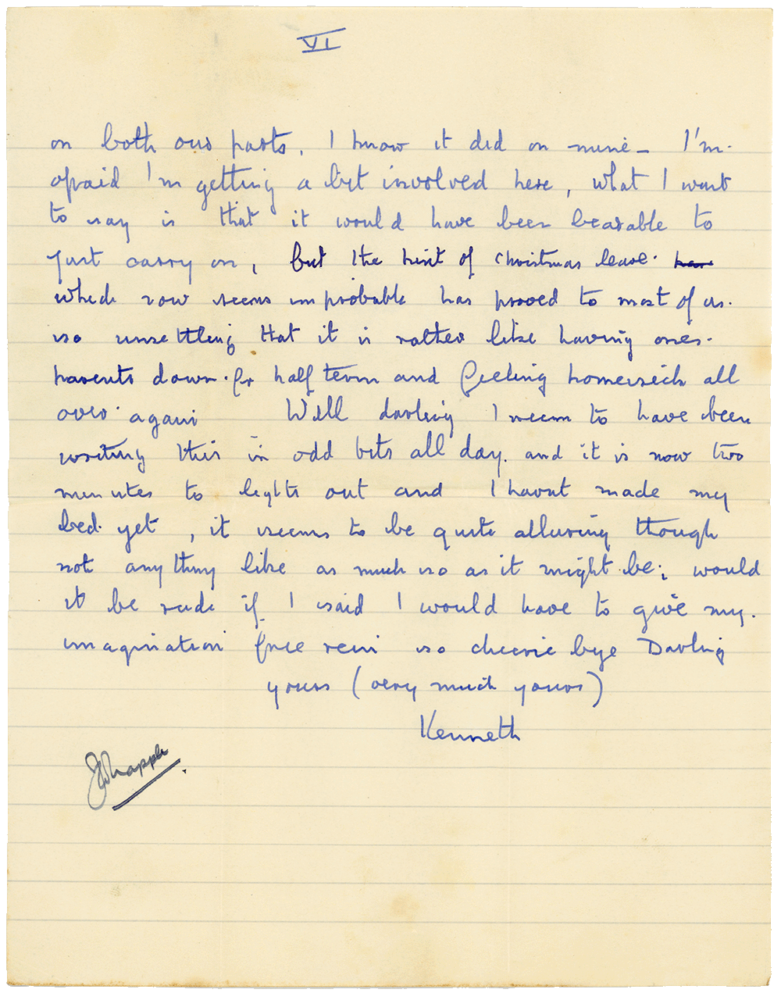 VI
on both our parts, I know it did on mine - I'm
afraid I'm getting a bit involved here, what I want
to say is that it would have been bearable to
just carry on, but the hint of Christmas leave
which now seems improbable has proved to most of us
so unsettling that it is rather like having ones
parents down for half term and feeling homesick all
over again Well darling I seem to have been
writing this in odd bits all day. and it is now two
minutes to lights out and I havnt made my
bed yet, it seems to be quite alluring though
not anything like as much so as it might be; would
it be rude if I said I would have to give my
imagination free rein so cheerie bye Darling
yours (very much yours)
Kenneth